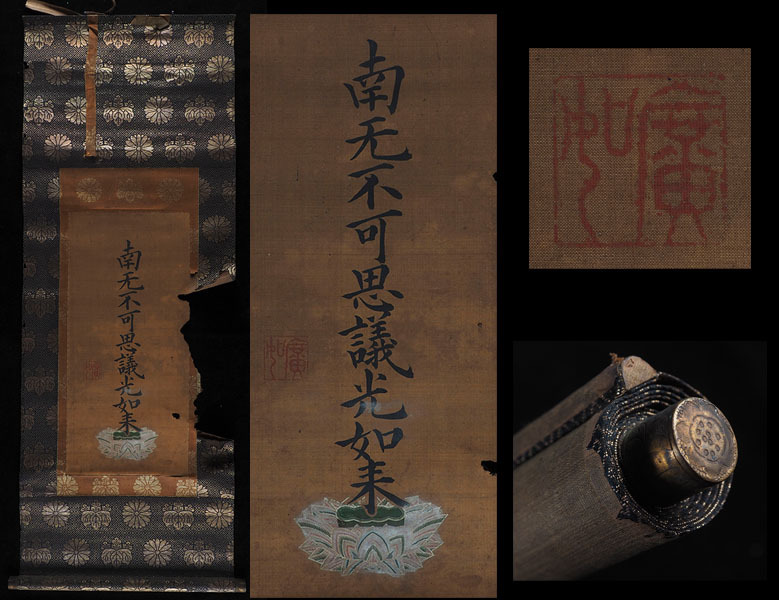 南无不可思議光如来
南无不可思議光如来
廣如
廣如